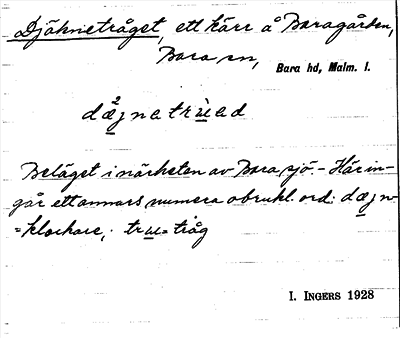 Djäknetråget, ett kärr å Baragården,
Bara sn, Bara hd, Malm. l.
dæ̀2jnatrùad
Beläget i närheten av Bara sjö. - Här in-
går ett annars numera obrukl. ord: dæjn
= klockare; tru = tråg
I. INGERS 1928